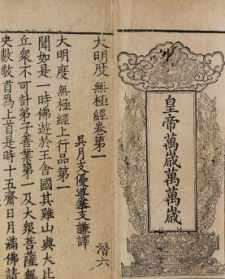 皇帝萬歲萬萬歲
大明度無極經卷第一
潛六
吳月支優婆塞支謙譯
大明度無極經上行品第一
聞如是一時佛遊於王舍國其雞山與大比
丘衆不可計弟子善業第一及大衆菩薩無
央數敬首為上首是時十五齋日月滿佛請